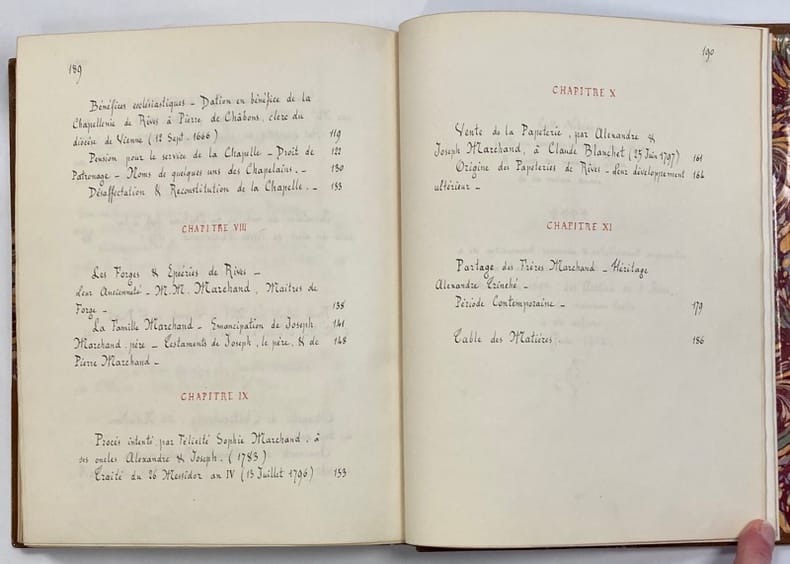 189
Bénéfices ecclésiastiques _ Dation en bénéfice de la
Chapellenie de Rives à Pierre de Châbons, clerc du
diocèse de Vienne (12 Sept. 1666) 119
Pension pour le service de la Chapelle _ Droit de 122
Patronage _ Noms de quelques uns des Chapelains. _ 130
Désaffectation & Reconstitution de la Chapelle. _ 133
CHAPITRE VIII
Les Forges & Epéeries de Rives _
Leur Ancienneté _ M.M. Marchand, Maîtres de
Forge _ 138
La Famille Marchand _ Emancipation de Joseph 141
Marchand, père _ Testaments de Joseph, le père, & de 148
Pierre Marchand _
CHAPITRE IX
Procés intenté par Félicité Sophie Marchand, à
ses oncles Alexandre & Joseph. (1783)
Traité du 26 Messidor an IV (13 Juillet 1796) 153
190
CHAPITRE X
Vente de la Papeterie, par Alexandre &
Joseph Marchand, à Claude Blanchet (25 Juin 1797) 161
Origine des Papeteries de Rives _ Leur développement 164
ultérieur _
CHAPITRE XI
Partage des Frères Marchand _ Héritage
Alexandre Eréneché _
Période Contemporaine _ 179
Table des Matières. 186